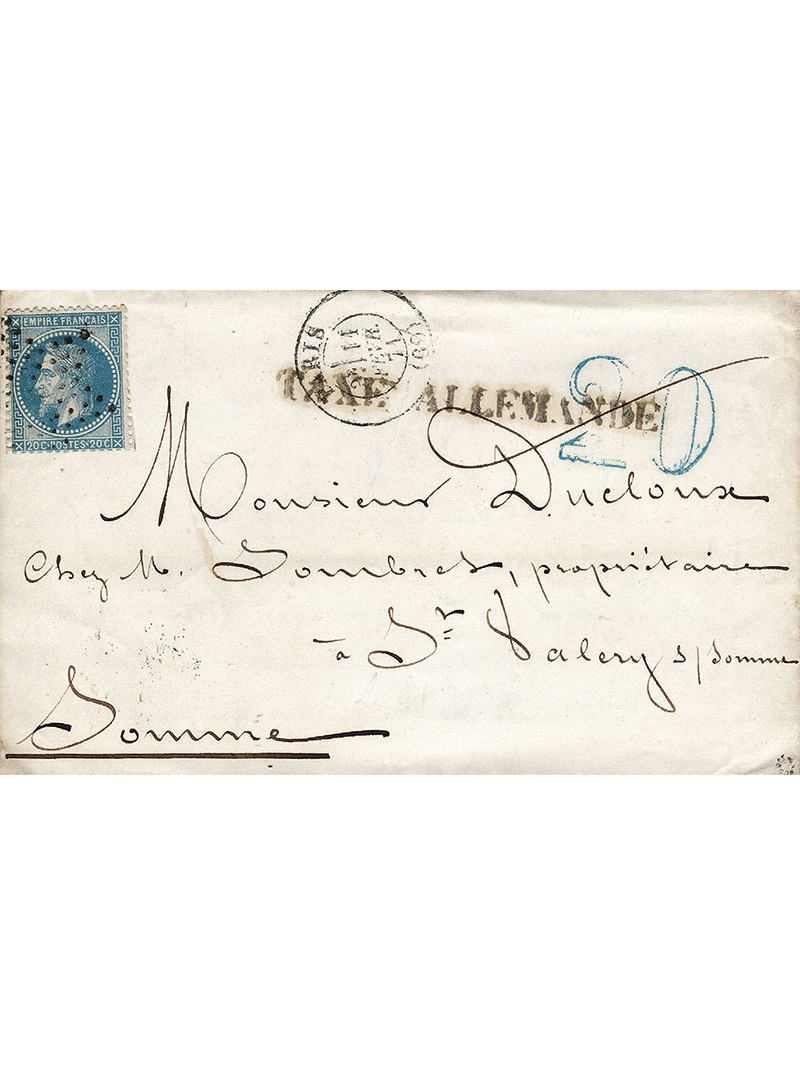 EMPIRE FRANÇAIS
20C POSTES 20C
(60)
TAXE ALLEMANDE
20
Monsieur Ducloux
Chez M. Sombret, propriétaire
à St Valery s/Somme
Somme